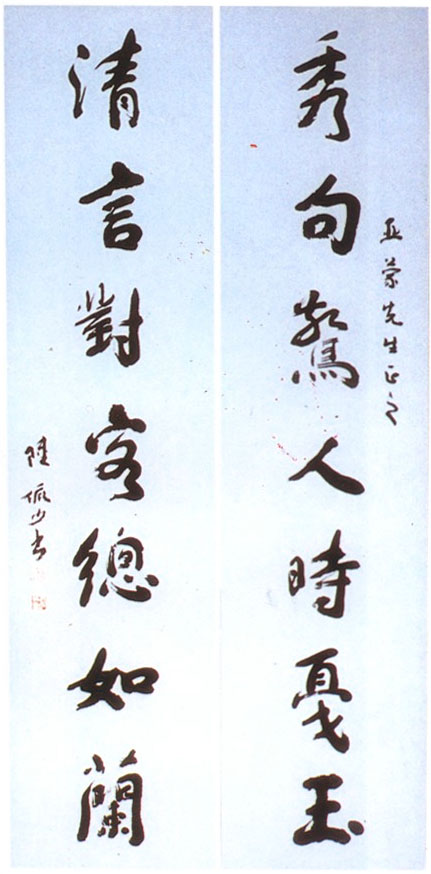 秀句驚人時戛玉
亞蒙先生正之
清言對客總如蘭
陸儼少書